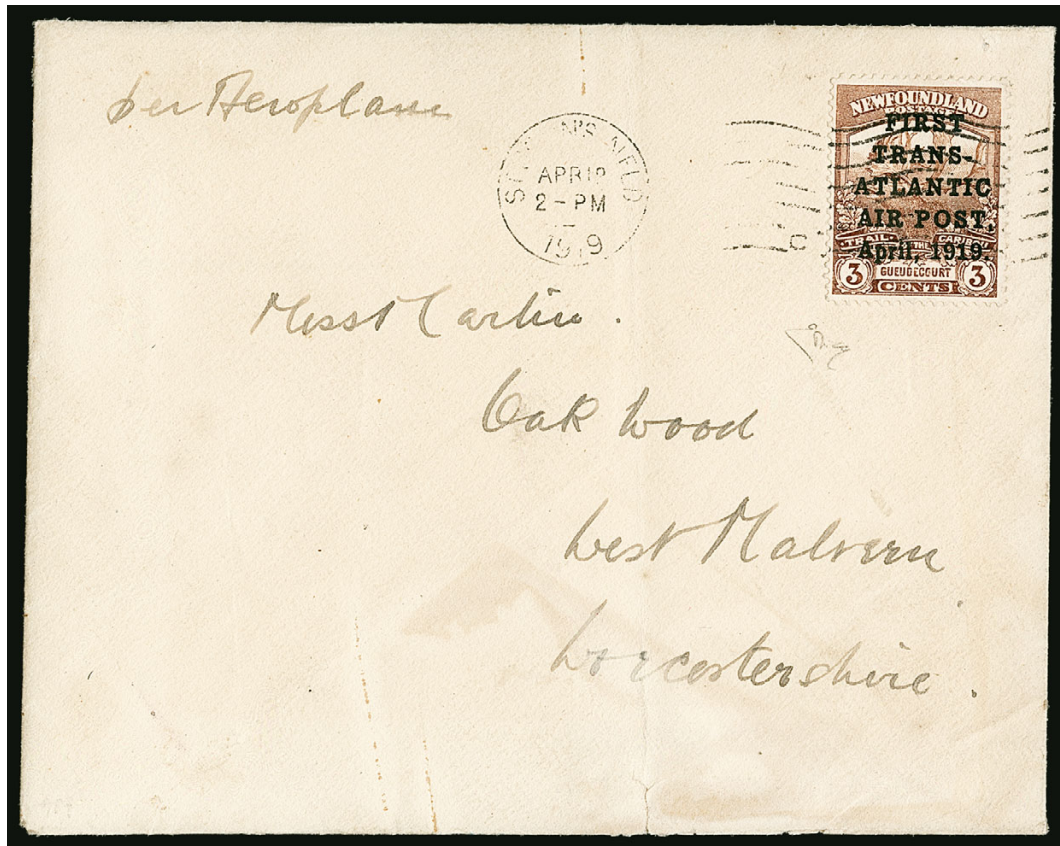 per Aeroplane
ST. JOHN'S NFLD
APR 12
2 - PM
1919
NEWFOUNDLAND
POSTAGE
FIRST
TRANS-
ATLANTIC
AIR POST,
April, 1919.
TRAIL OF THE CARIBOU
3 GUEUDECOURT 3
CENTS
Miss Martin.
Oak Wood
West Malvern
Worcestershire.